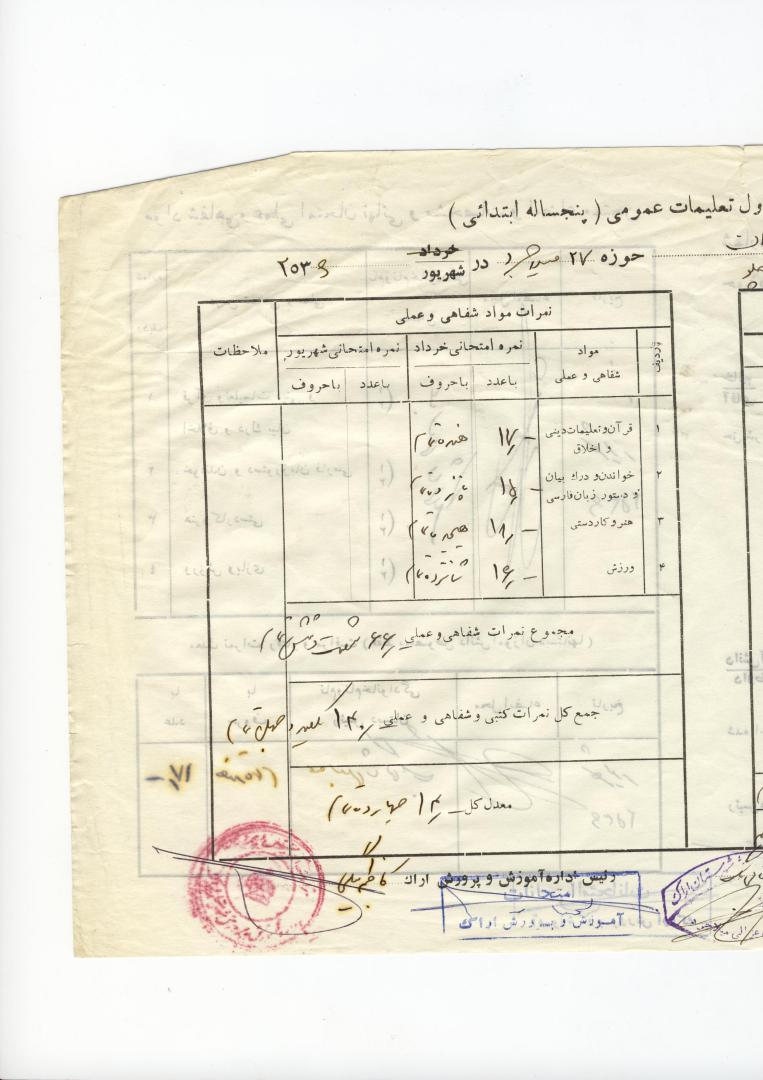 ول تعلیمات عمومی ( پنجساله ابتدائی )
حوزه ۲۷ در خرداد شهریور ۲۵۳۶
نمرات مواد شفاهی و عملی
ردیف
مواد شفاهی و عملی
نمره امتحانی خرداد
نمره امتحانی شهریور
ملاحظات
باعدد
باحروف
باعدد
باحروف
۱ قرآن و تعلیمات دینی و اخلاق ۱۷ هفده تمام
۲ خواندن و درك بیان و دستور زبان فارسی ۱۵ پانزده تمام
۳ هنر و کاردستی ۱۸ هیجده تمام
۴ ورزش ۱۶ شانزده تمام
مجموع نمرات شفاهی و عملی ۶۶ شصت و شش تمام
جمع کل نمرات کتبی و شفاهی و عملی ۱۴۰ یکصد و چهل تمام
معدل کل ۱۴ چهارده تمام
رئیس اداره آموزش و پرورش اراك
امتحانات
آموزش و پرورش اراك